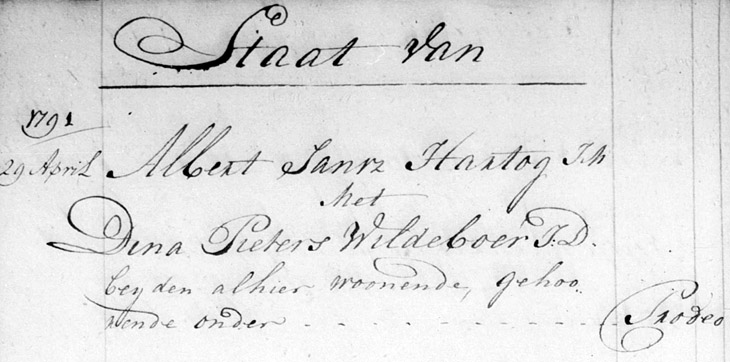 Staat van
1791
29 April Albert Janrz Hartog J.M
Met
Dina Pieters Wildeboer J.D.
beyden alhier woonende, gehoo
rende onder - - - - - - - - Prodeo